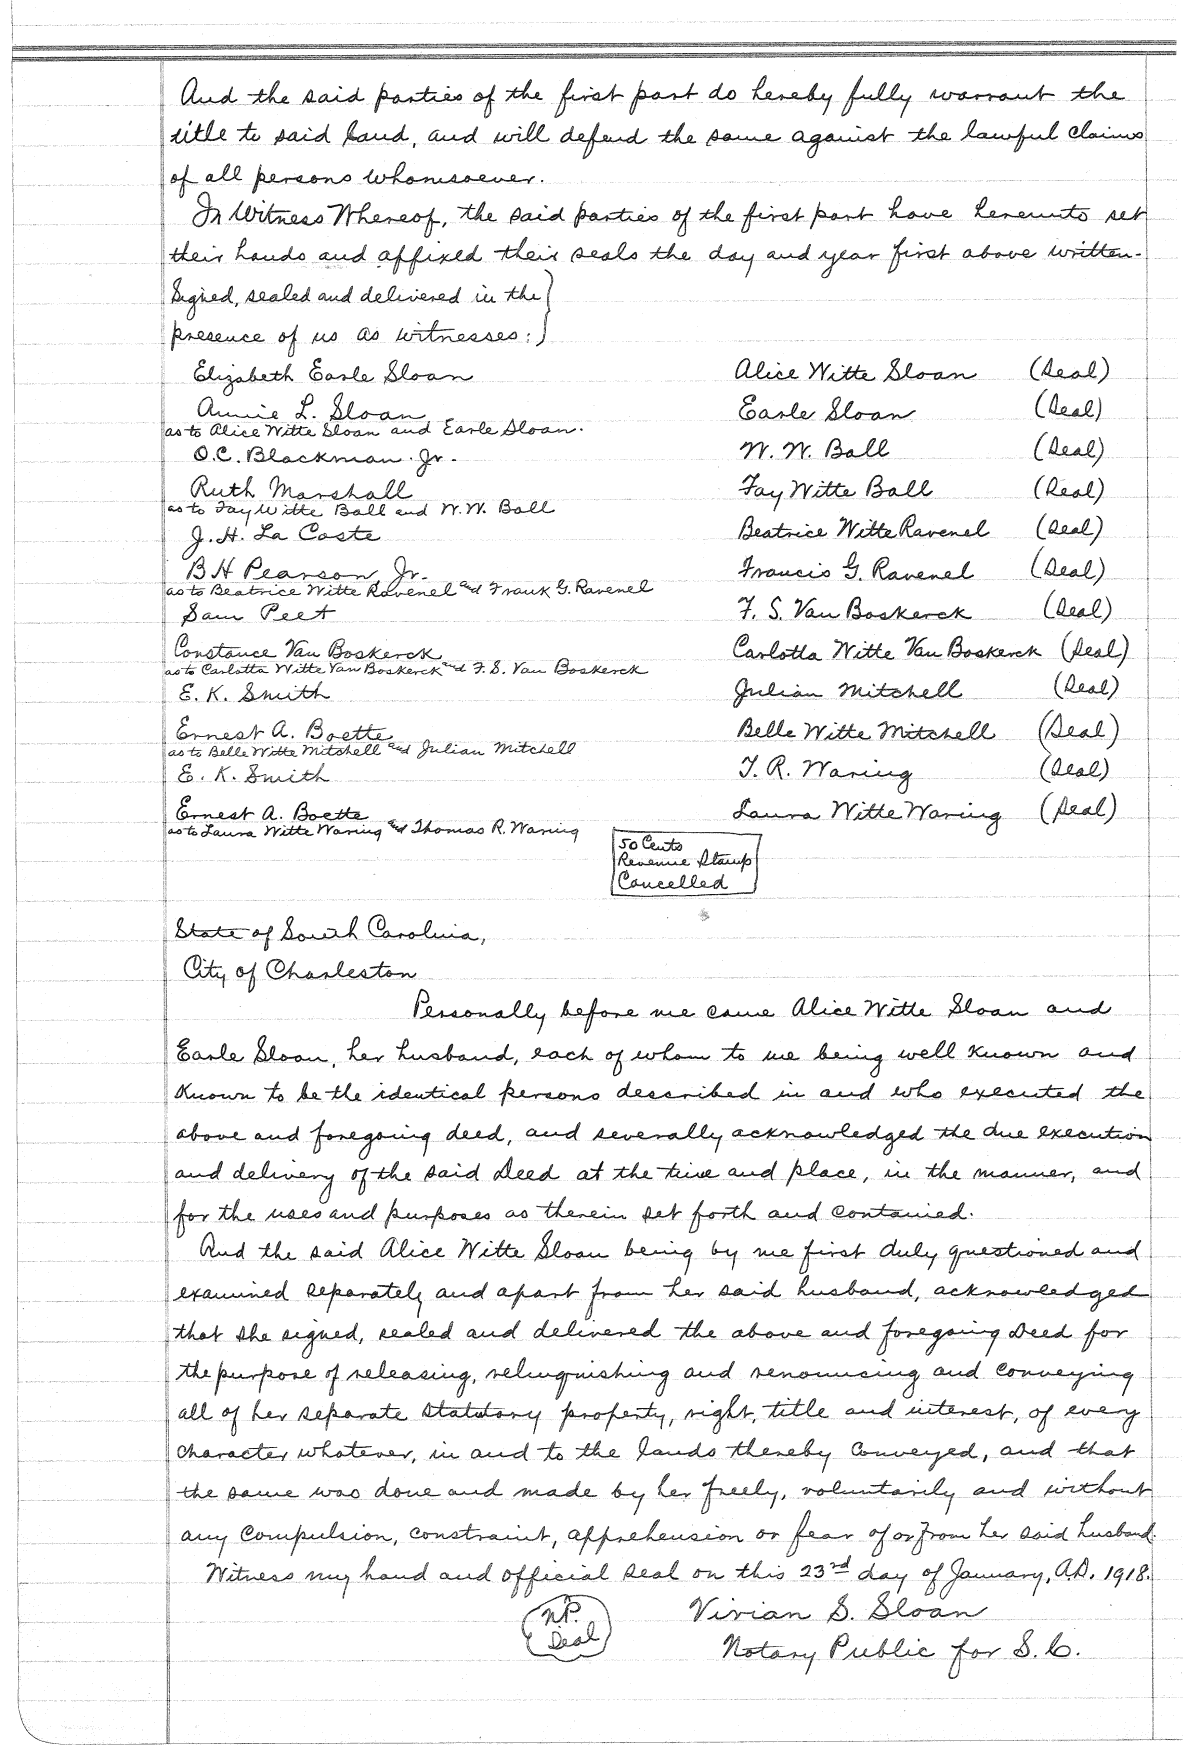 And the said parties of the first part do hereby fully warrant the
title to said land, and will defend the same against the lawful claims
of all persons whomsoever.
In Witness Whereof, the said parties of the first part have hereunto set
their hands and affixed their seals the day and year first above written.
Signed, sealed and delivered in the
presence of us as witnesses:
Elizabeth Earle Sloan Alice Witte Sloan (Seal)
Annie L. Sloan Earle Sloan (Seal)
as to Alice Witte Sloan and Earle Sloan.
O.C. Blackman Jr. W. W. Ball (Seal)
Ruth Marshall Fay Witte Ball (Seal)
as to Fay Witte Ball and W.W. Ball
J. H. La Coste Beatrice Witte Ravenel (Seal)
B H Pearson Jr. Francis G. Ravenel (Seal)
as to Beatrice Witte Ravenel and Frank G. Ravenel
Sam Peet F. S. Van Boskerck (Seal)
Constance Van Boskerck Carlotta Witte Van Boskerck (Seal)
as to Carlotta Witte Van Boskerck and F. S. Van Boskerck
E. K. Smith Julian Mitchell (Seal)
Ernest A. Boette Belle Witte Mitchell (Seal)
as to Belle Witte Mitchell and Julian Mitchell
E. K. Smith T. R. Waring (Seal)
Ernest A. Boette Laura Witte Waring (Seal)
as to Laura Witte Waring and Thomas R. Waring
50 Cents
Revenue Stamp
Cancelled
State of South Carolina,
City of Charleston
Personally before me came Alice Witte Sloan and
Earle Sloan, her husband, each of whom to me being well known and
known to be the identical persons described in and who executed the
above and foregoing deed, and severally acknowledged the due execution
and delivery of the said Deed at the time and place, in the manner, and
for the uses and purposes as therein set forth and contained.
And the said Alice Witte Sloan being by me first duly questioned and
examined separately and apart from her said husband, acknowledged
that she signed, sealed and delivered the above and foregoing Deed for
the purpose of releasing, relinquishing and renouncing and conveying
all of her separate statutory property, right, title and interest, of every
character whatever, in and to the lands thereby conveyed, and that
the same was done and made by her freely, voluntarily and without
any compulsion, constraint, apprehension or fear of or from her said husband.
Witness my hand and official seal on this 23rd day of January, A.D. 1918.
N.P. Seal Vivian S. Sloan
Notary Public for S.C.